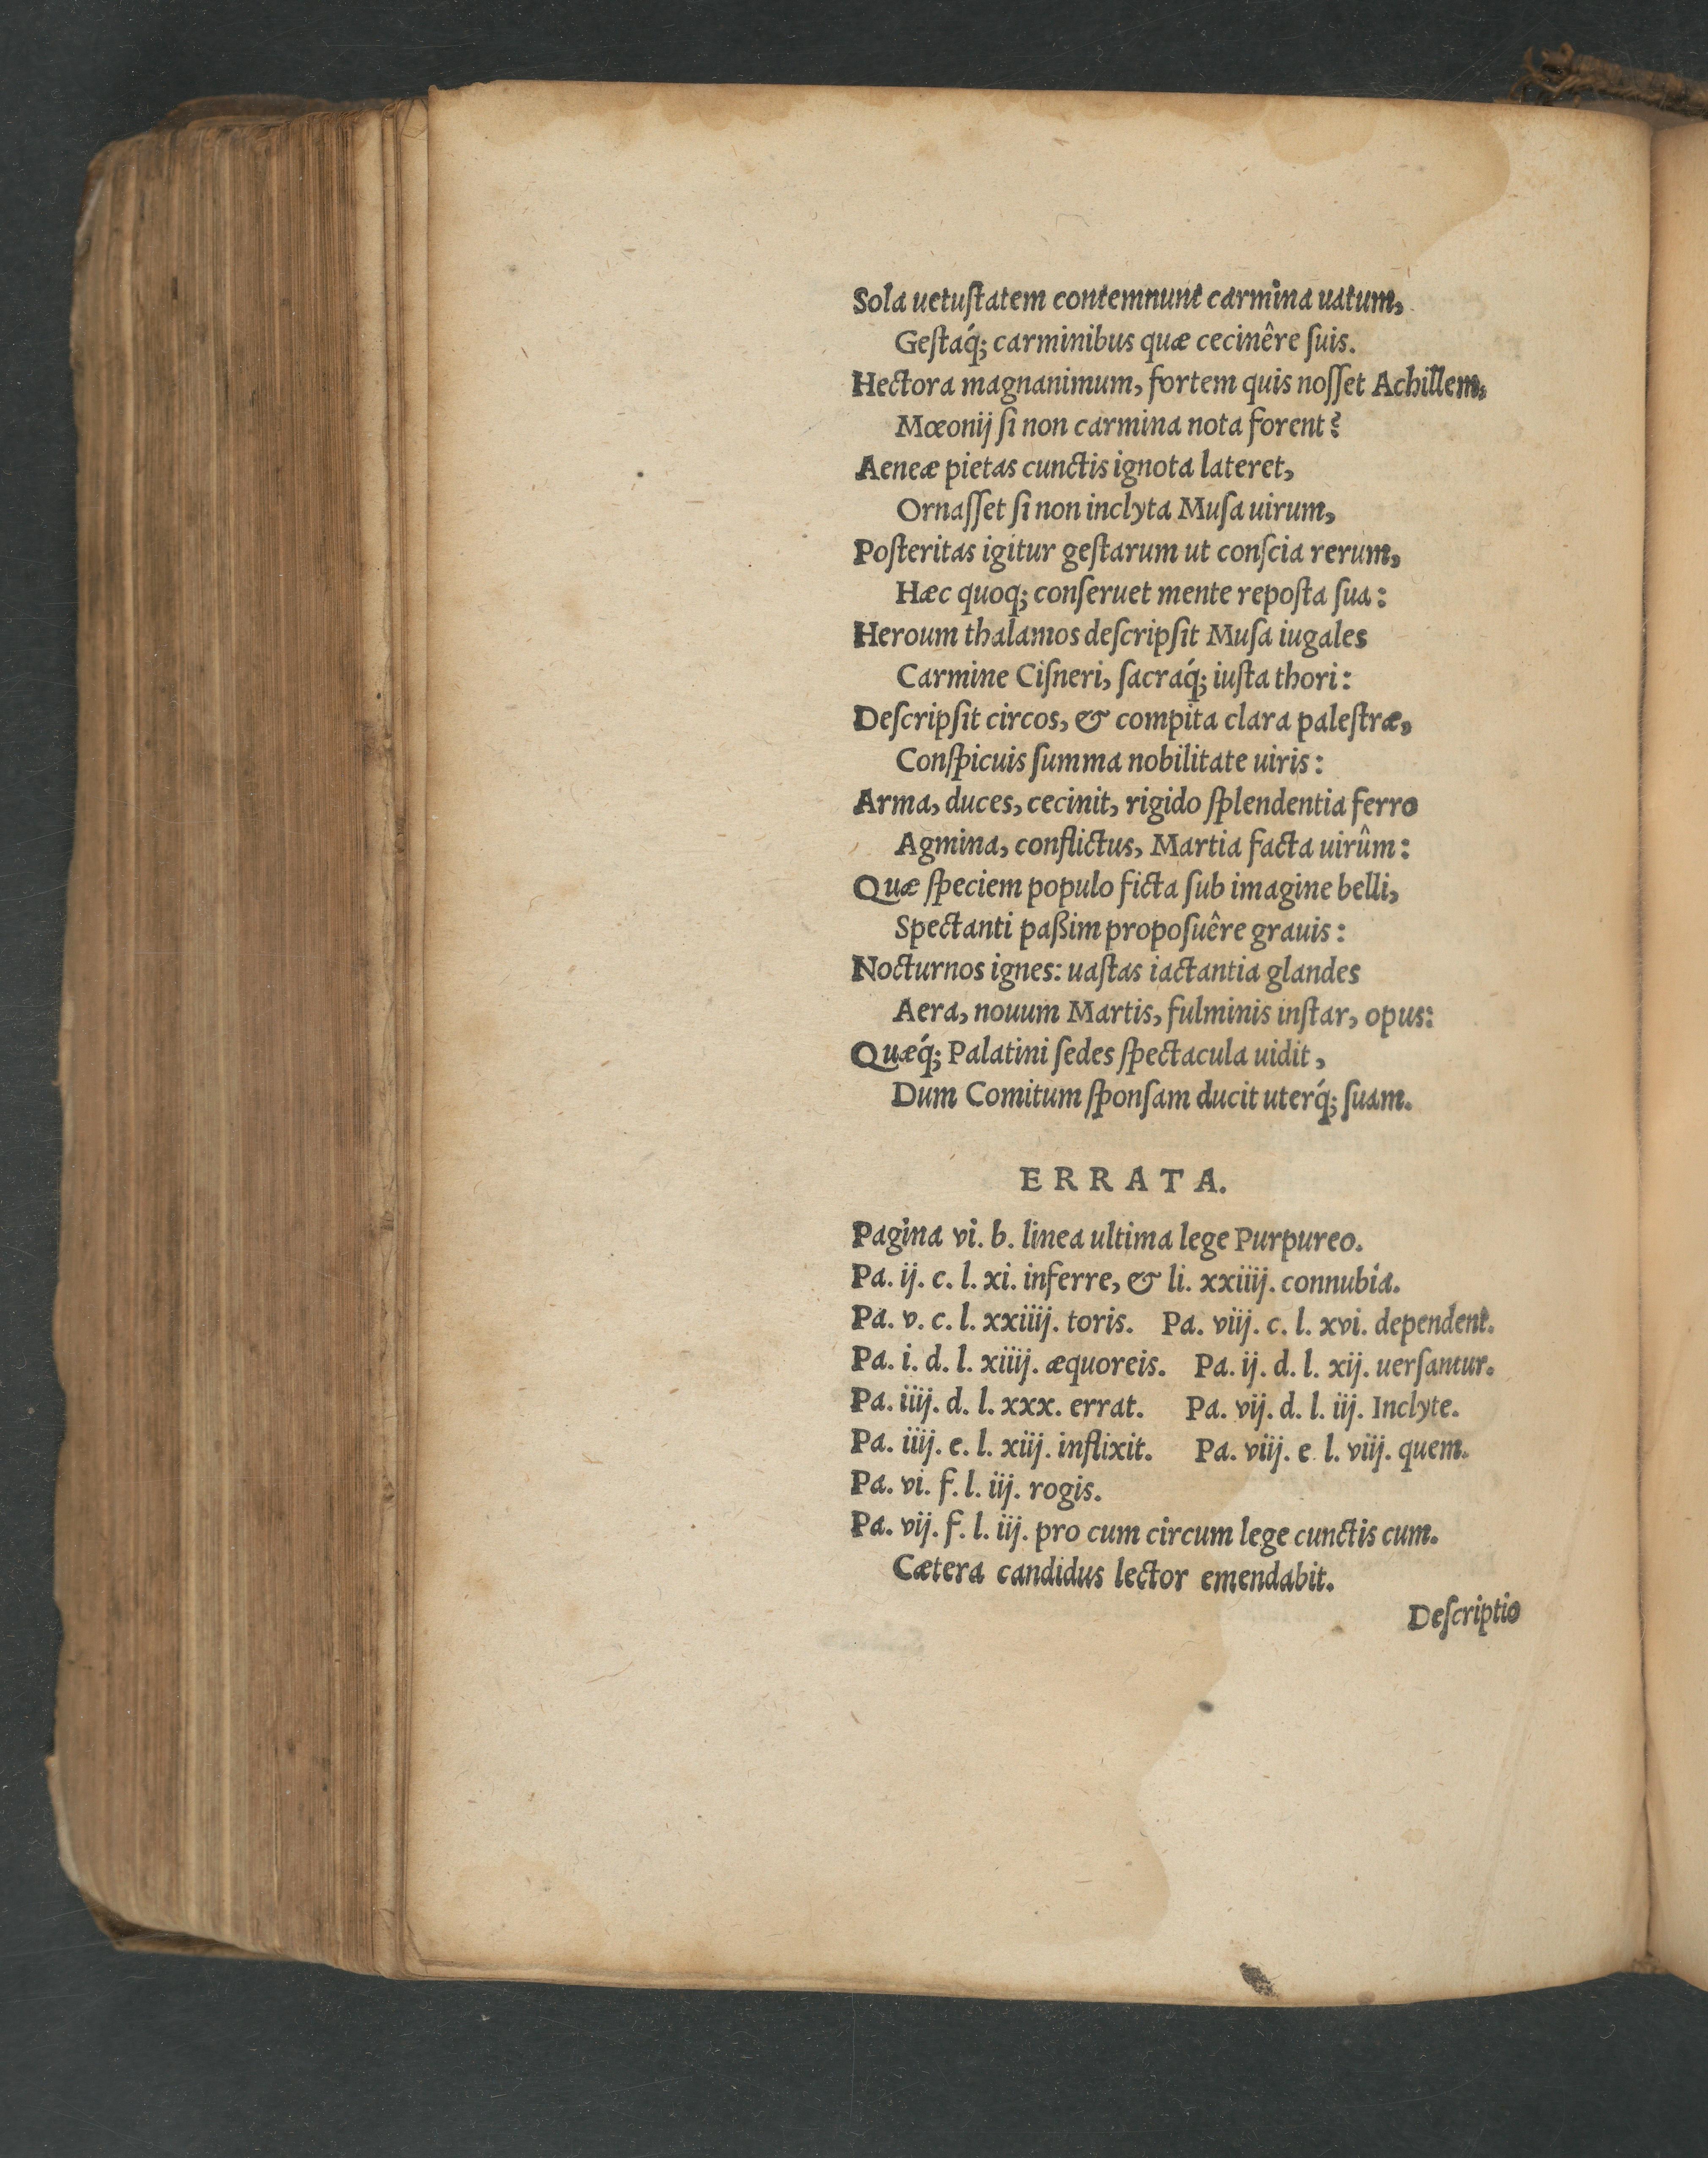 Sola uetuſtatem contemnunt carmina uatum,
Geſtaq́; carminibus quæ cecinêre ſuis.
Hectora magnanimum, fortem quis noſſet Achillem,
Mœonij ſi non carmina nota forent?
Aeneæ pietas cunctis ignota lateret,
Ornaſſet ſi non inclyta Muſa uirum,
Poſteritas igitur geſtarum ut conſcia rerum,
Hæc quoq; conſeruet mente repoſta ſua:
Heroum thalamos deſcripſit Muſa iugales
Carmine Ciſneri, ſacraq́; iuſta thori:
Deſcripſit circos, & compita clara paleſtræ,
Conſpicuis ſumma nobilitate uiris:
Arma, duces, cecinit, rigido ſplendentia ferro
Agmina, conflictus, Martia facta uirûm:
Quæ ſpeciem populo ficta ſub imagine belli,
Spectanti paßim propoſuêre grauis:
Nocturnos ignes: uaſtas iactantia glandes
Aera, nouum Martis, fulminis inſtar, opus:
Quæq́; Palatini ſedes ſpectacula uidit,
Dum Comitum ſponſam ducit uterq́; ſuam.
ERRATA.
Pagina vi. b. linea ultima lege Purpureo.
Pa. ij. c. l. xi. inferre, & li. xxiiij. connubia.
Pa. v. c. l. xxiiij. toris. Pa. viij. c. l. xvi. dependent.
Pa. i. d. l. xiiij. æquoreis. Pa. ij. d. l. xij. uerſantur.
Pa. iiij. d. l. xxx. errat. Pa. vij. d. l. iij. Inclyte.
Pa. iiij. e. l. xiij. inflixit. Pa. viij. e. l. viij. quem.
Pa. vi. f. l. iij. rogis.
Pa. vij. f. l. iij. pro cum circum lege cunctis cum.
Cætera candidus lector emendabit.
Deſcriptio